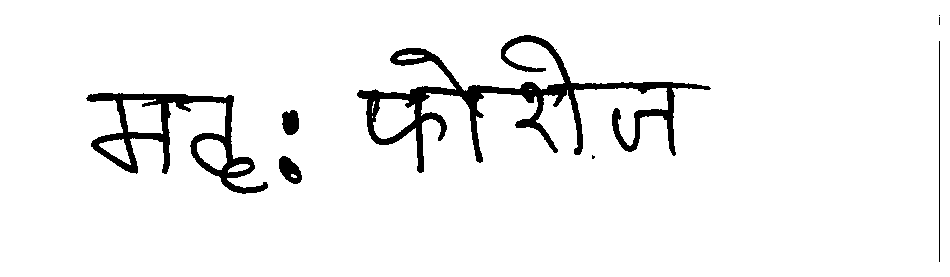 मह: फोरोज